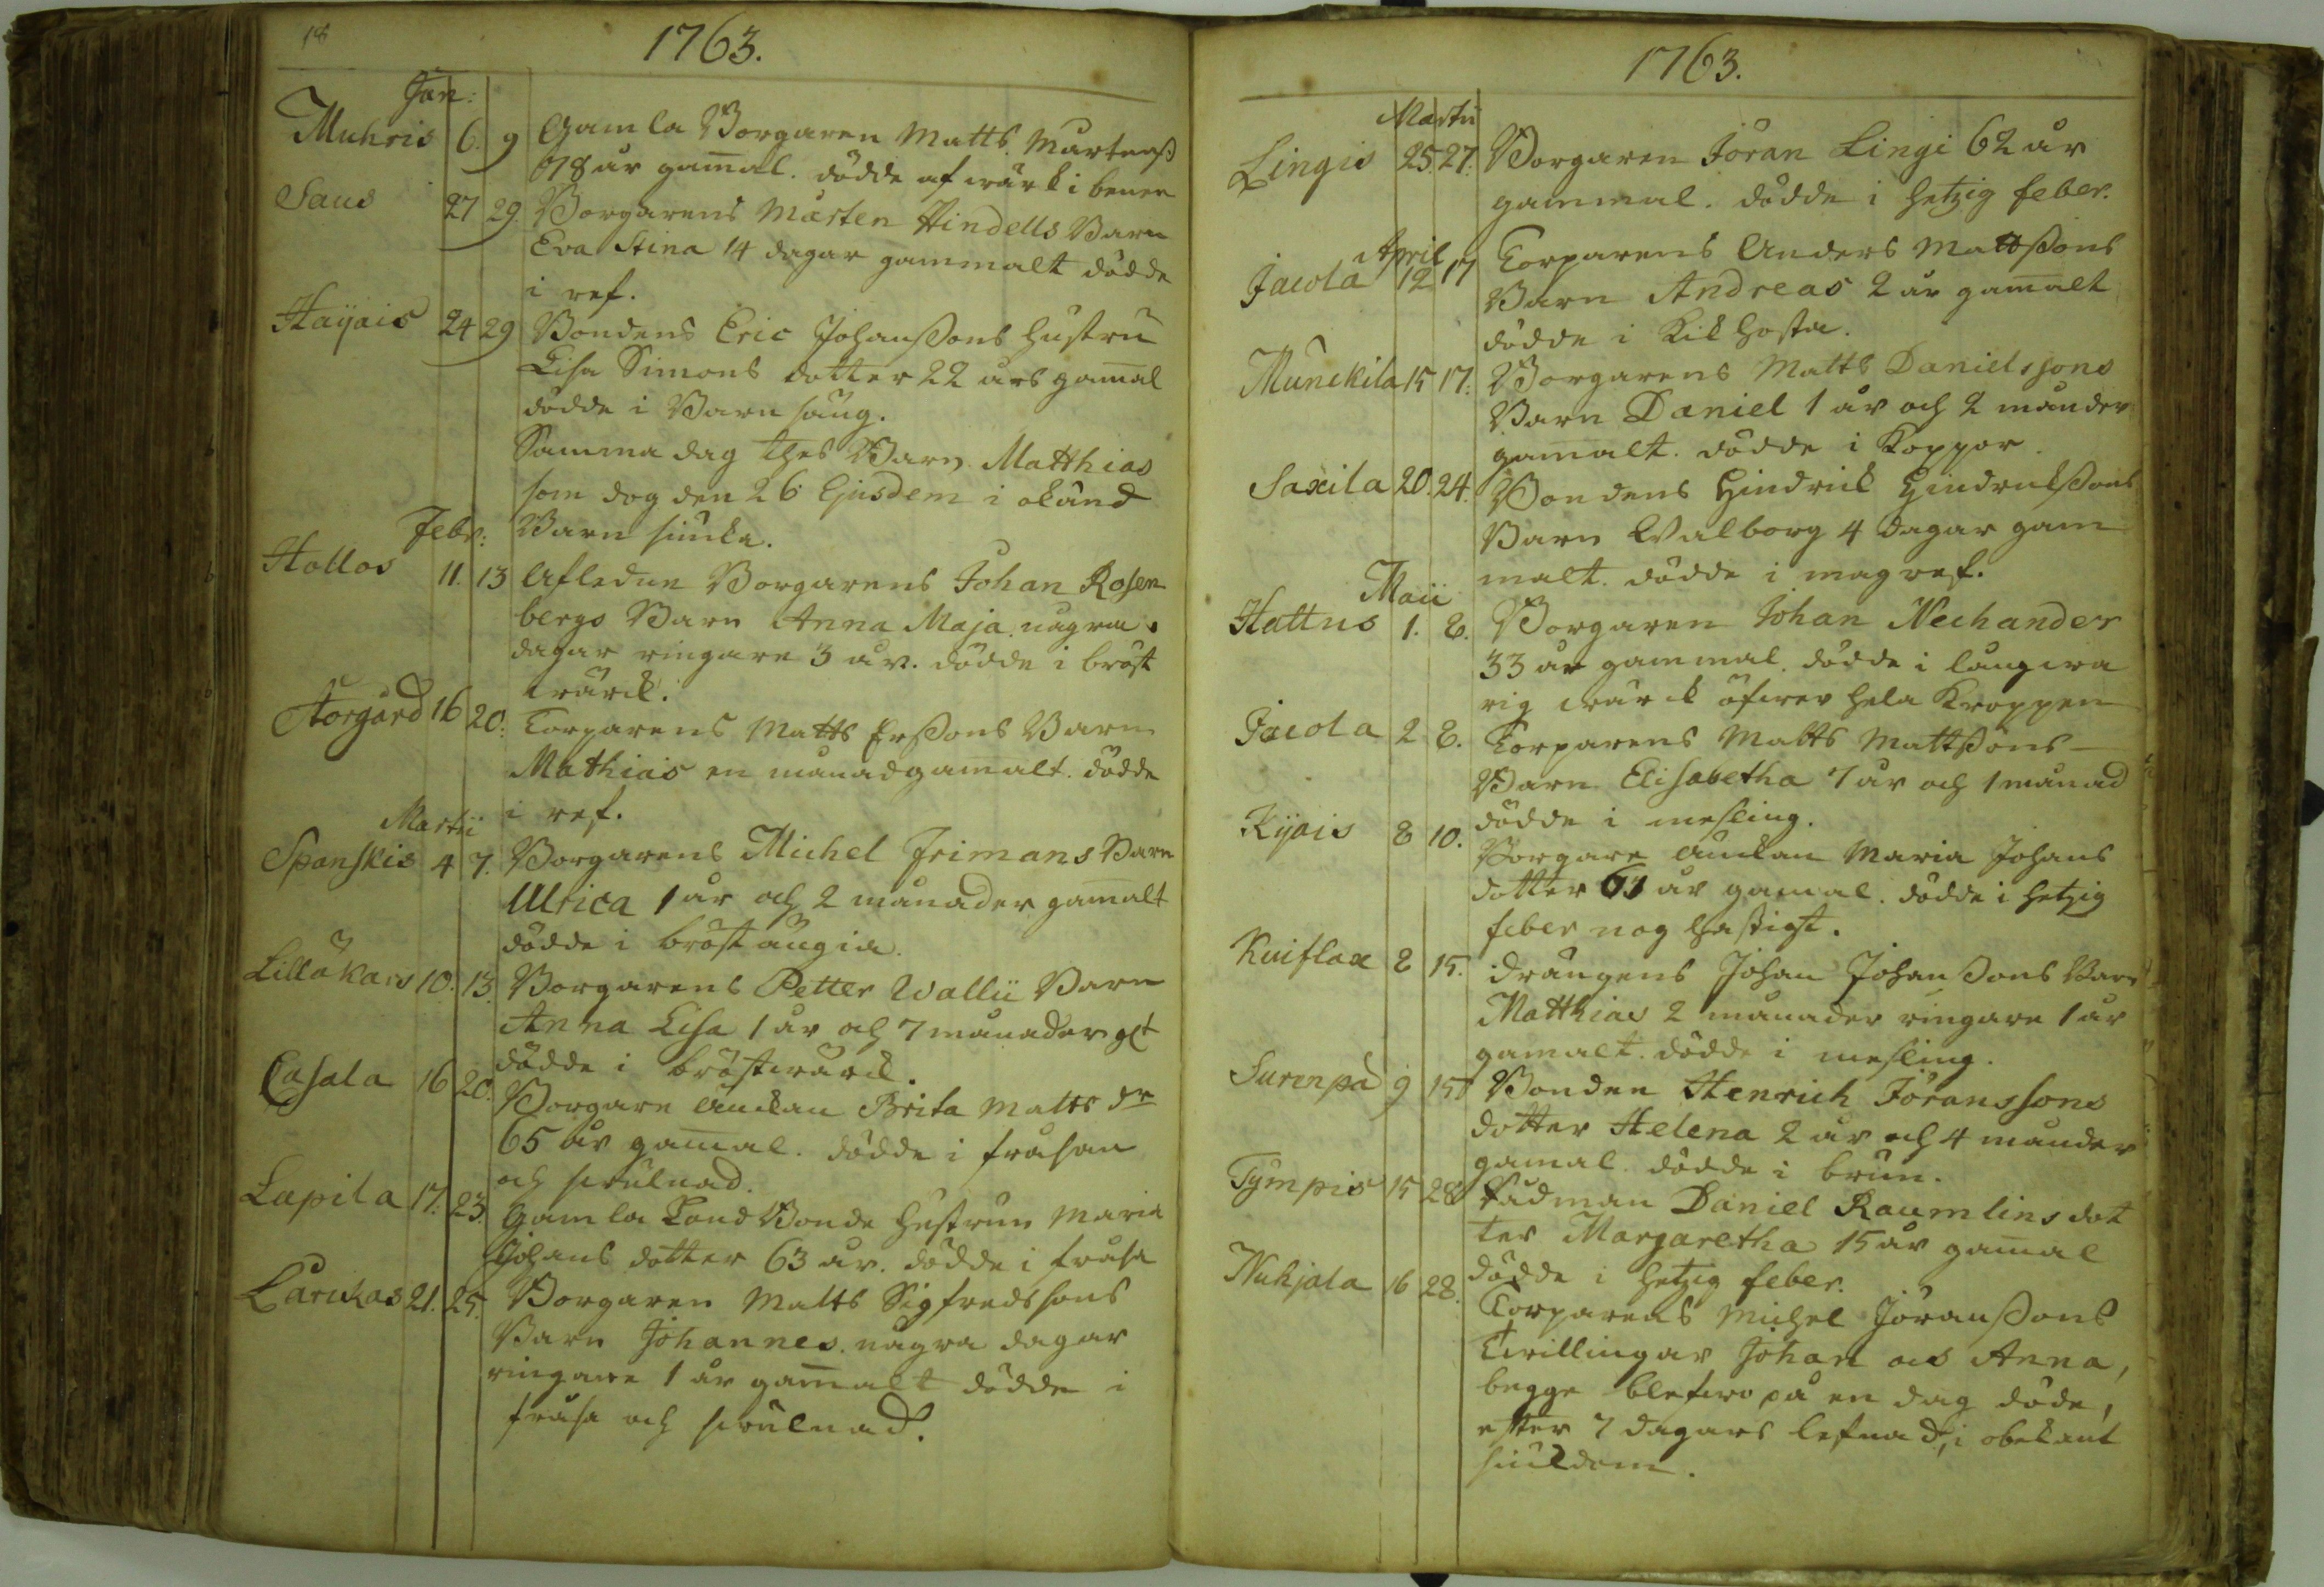 18
1763.
Jan:
Muhris 6. 9 Gamla Borgaren Matts Mårtenß
78 år gam̄al. dödde af wärk i benen
Saus 27 29. Borgarens Mårten Hindells Barn
Eva Stina 14 dagar gammalt dödde
i ref.
Haijais 24 29 Bondens Eric Johanßons hustru
Lisa Simons dotter 22 års gam̄al
dödde i Barnsäng.
Samma dag thes Barn Matthias
som dog den 26 Ejusdem i okänd
Barn siuka.
Febr:
Hollos 11. 13 Afledne Borgarens Johan Rosen
bergs Barn Anna Maja några
dagar ringare 3 år. dödde i bröst
wärck.
Storgård 16 20. Torparens Matts Erßons Barn
Mathias en månad gamalt. dödde
i ref.
Martii
Spanskis 4 7. Borgarens Michel Frimans Barn
Ulrica 1 år och 2 månader gam̄alt
dödde i bröst
Lillåkars 10. 13. Borgarens Petter Wallii Barn
Anna Lisa 1 år och 7 månader glt
dödde i bröstwärck.
Casala 16 20. Borgare Änckan Brita Matts dr
65 år gam̄al. dödde i fråsan
och swulnad.
Lapila 17. 23. Gamla Land Bonde hustrun Maria
Johans dotter 63 år. dödde i fråsa
Larikas 21. 25. Borgaren Matts Sigfredssons
Barn Johannes några dagar
ringare 1 år gam̄alt dödde i
fråsa och swulnad.
1763.
Martii
Lingis 25. 27. Borgaren Jöran Lingi 62 år
gammal. dödde i hetzig feber.
April
Jacola 12 17 Torparens Anders Mattßons
Barn Andreas 2 år gam̄alt
dödde i Kikhosta.
Munckila 15 17. Borgarens Matts Danielssons
Barn Daniel 1 år och 2 månder
gamalt. dödde i Koppor.
Saxila 20. 24. Bondens Hindrick Hindricksßons
Barn Walborg 4 dagar gam
malt. dödde i magref.
Maii
Hattus 1. 8. Borgaren Johan Nechander
33 år gammal. dödde i långwa
rig wärck öfwer hela Kroppen
Jacola 2 8. Torparens Matts Mattßons
Barn Elisabetha 7 år och 1 månad
dödde i mesling.
Kijais 8 10. Borgare Änckan Maria Johans
dotter 63 år gamal. dödde i hetzig
feber nog hastigt.
Kuiflax 8 15. drängens Johan Johanßons Barn
Matthias 2 månader ringare 1 år
gamalt. dödde i mesling.
Surenpä 9 15 Bonden Henrich Jöranssons
dotter Helena 2 år och 4 månder
gamal. dödde i brun.
Tÿmpis 15 28 Daniel Raumlins dot
ter Margaretha 15 år gam̄al
dödde i hetzig feber.
Nuhjala 16 28. Torparens Michel Jöranßons
Twillingar Johan och Anna,
begge blefwo på en dag döde,
efter 7 dagars lefnad, i obekant
siukdom.